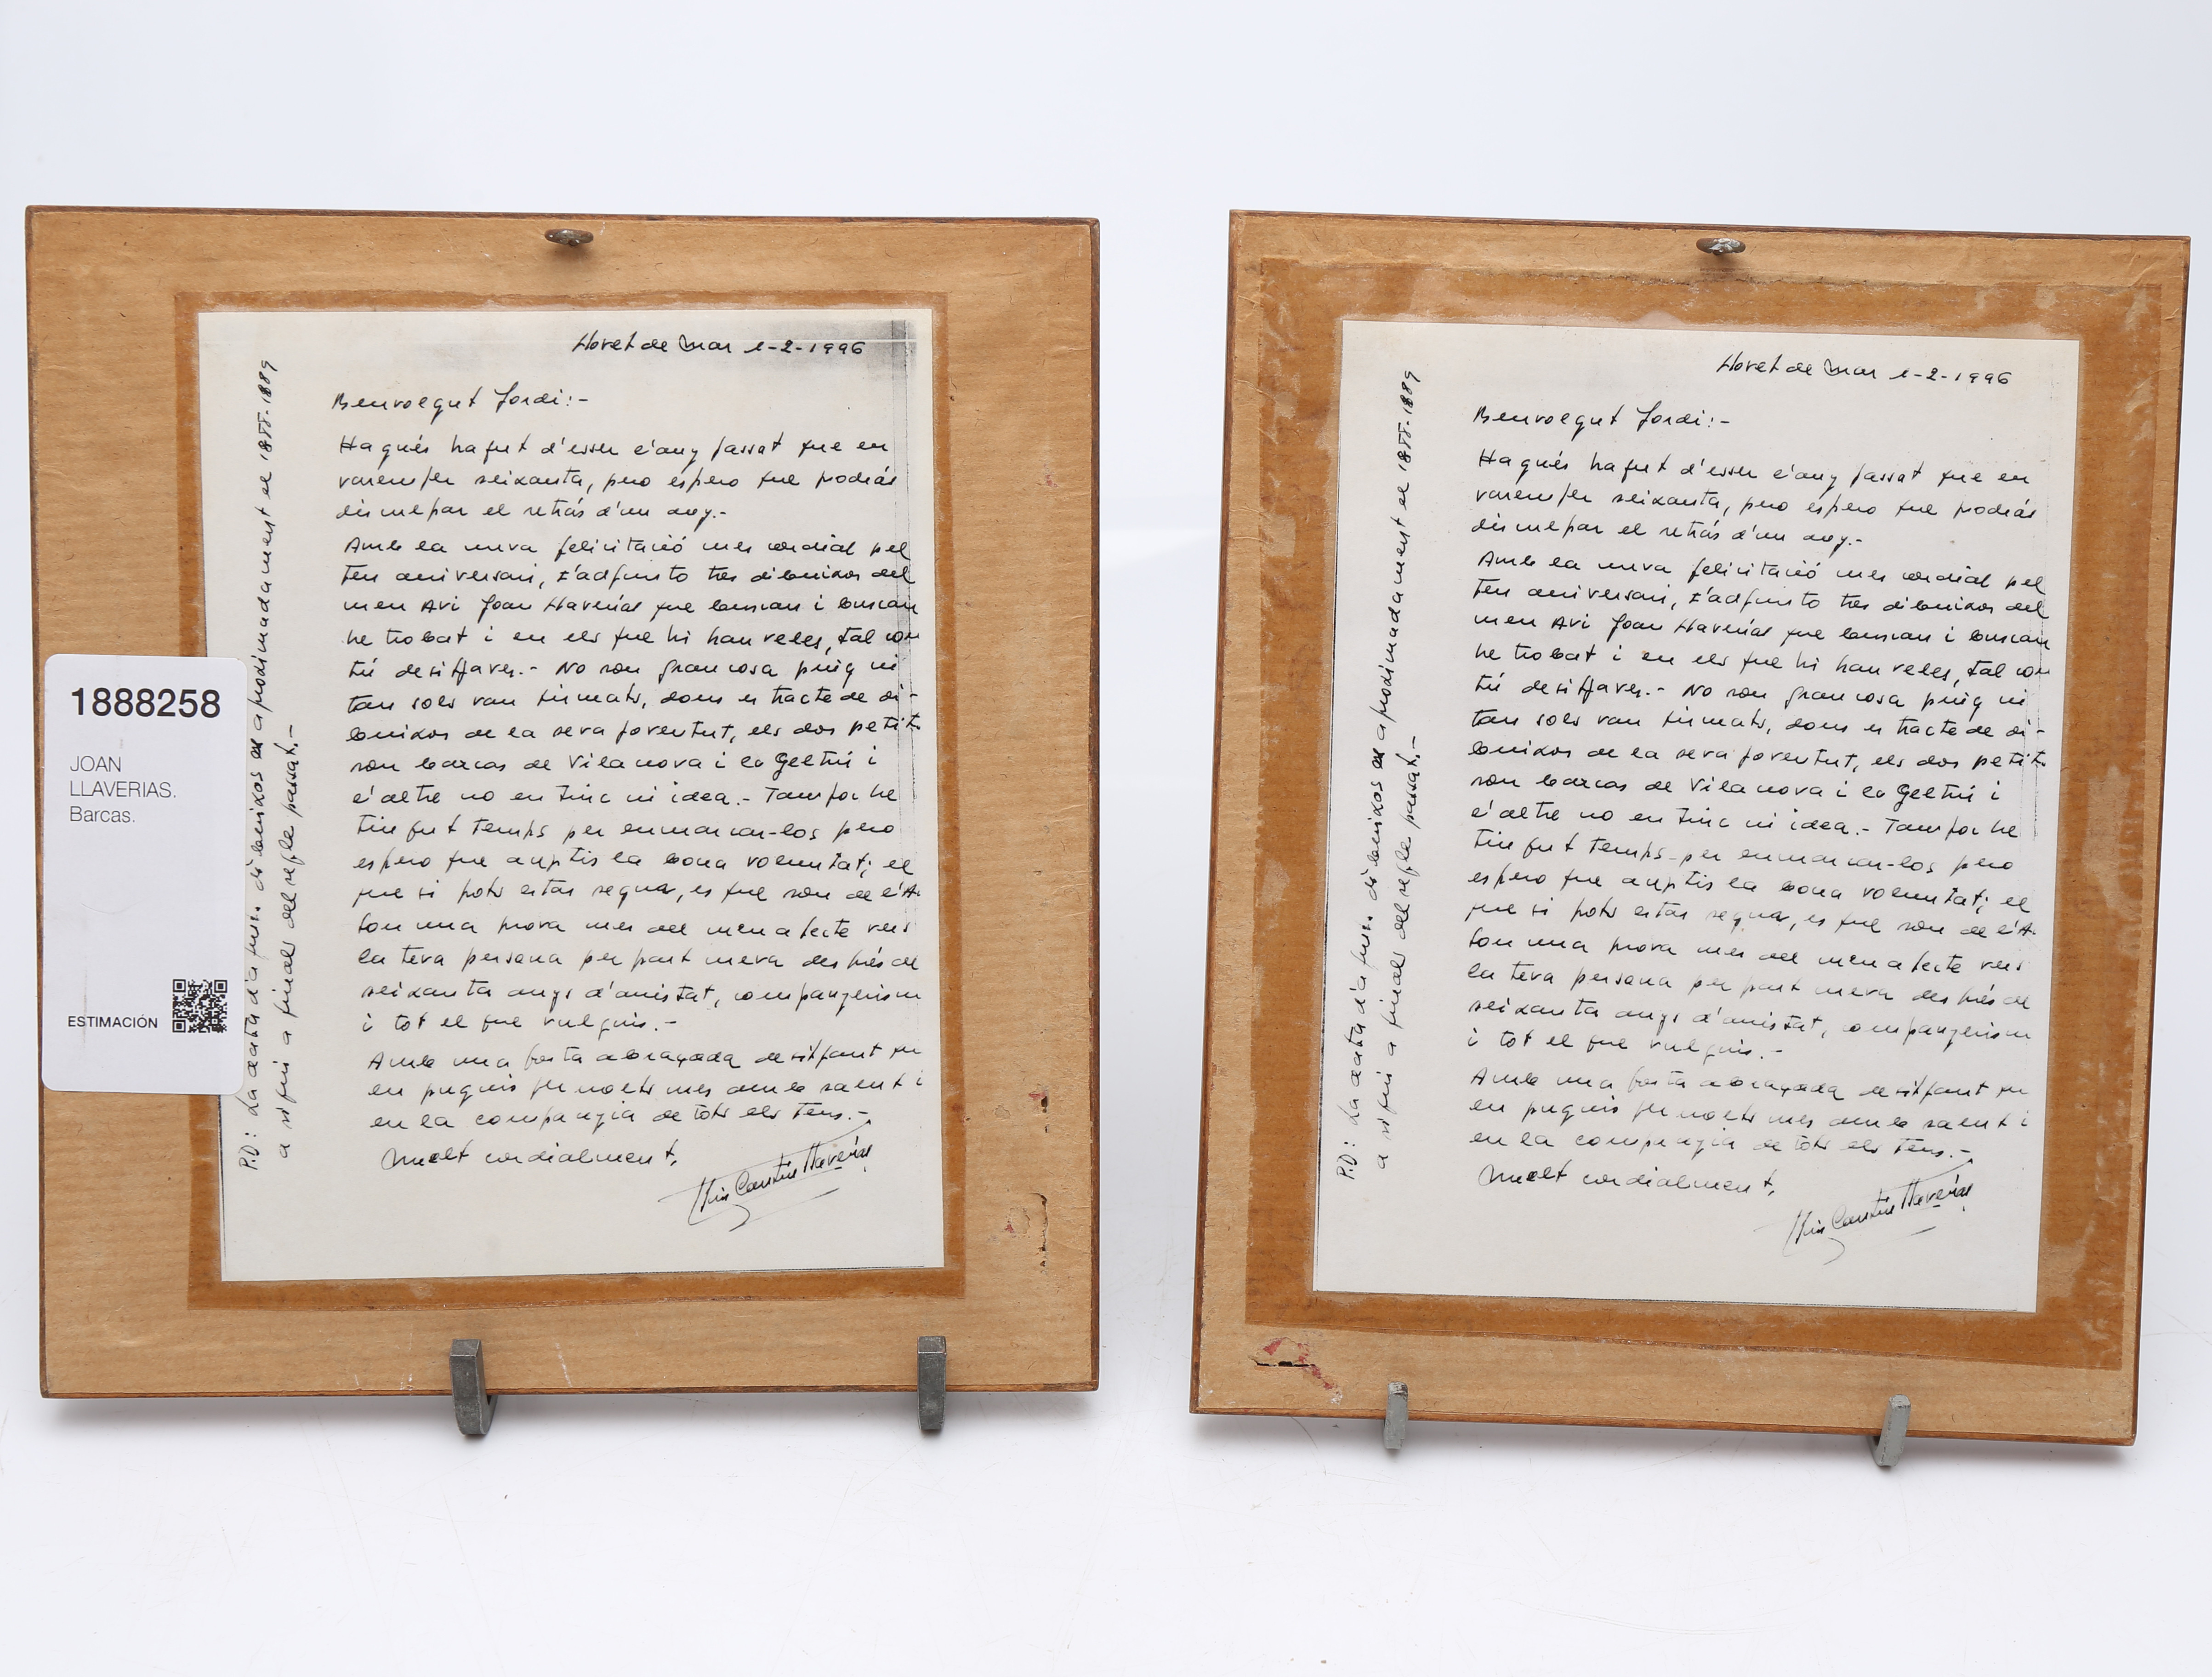 Lloret de Mar 1-2-1996
Benvolgut Jordi:-
Hagués hagut d'esser l'any passat que en
varem fer seixanta, pero espero que podrás
disculpar el retrás d'un any.-
Amb la meva felicitació mes cordial pel
teu aniversari, t'adjunto tres dibuixos del
meu Avi Joan Llaverias que buscan i buscan
he trobat i en els que hi han veles, tal com
tú desitjaves.- No son gran cosa puig ni
tan sols van firmats, doncs es tracte de di-
buixos de la seva joventut, els dos petits
son barcas de Vilanova i la Geltrú i
l'altre no en tinc ni idea.- Tampoc he
tingut temps per enmarcar-los pero
espero que aceptis la bona voluntat; el
que si pots estar segur, es que son de l'A-
son una prova mes del meu afecte vers
la teva persona per part meva després de
seixanta anys d'amistat, companyerism
i tot el que vulguis.-
Amb una forta abraçada desitjant que
en puguis fer molts mes amb salut i
en la companyia de tots els teus.-
Molt cordialment,
Cantin Llaverias
P.D: La data d'aquets dibuixos es aproximadament el 1888-1889
a sigui a finals del segle passat.-
1888258
JOAN
LLAVERIAS.
Barcas.
ESTIMACIÓN
Lloret de Mar 1-2-1996
Benvolgut Jordi:-
Hagués hagut d'esser l'any passat que en
varem fer seixanta, pero espero que podrás
disculpar el retrás d'un any.-
Amb la meva felicitació mes cordial pel
teu aniversari, t'adjunto tres dibuixos del
meu Avi Joan Llaverias que buscan i buscan
he trobat i en els que hi han veles, tal com
tú desitjaves.- No son gran cosa puig ni
tan sols van firmats, doncs es tracte de di-
buixos de la seva joventut, els dos petits
son barcas de Vilanova i la Geltrú i
l'altre no en tinc ni idea.- Tampoc he
tingut temps per enmarcar-los pero
espero que aceptis la bona voluntat; el
que si pots estar segur, es que son de l'A-
son una prova mes del meu afecte vers
la teva persona per part meva després de
seixanta anys d'amistat, companyerism
i tot el que vulguis.-
Amb una forta abraçada desitjant que
en puguis fer molts mes amb salut i
en la companyia de tots els teus.-
Molt cordialment,
Cantin Llaverias
P.D: La data d'aquets dibuixos es aproximadament el 1888-1889
a sigui a finals del segle passat.-